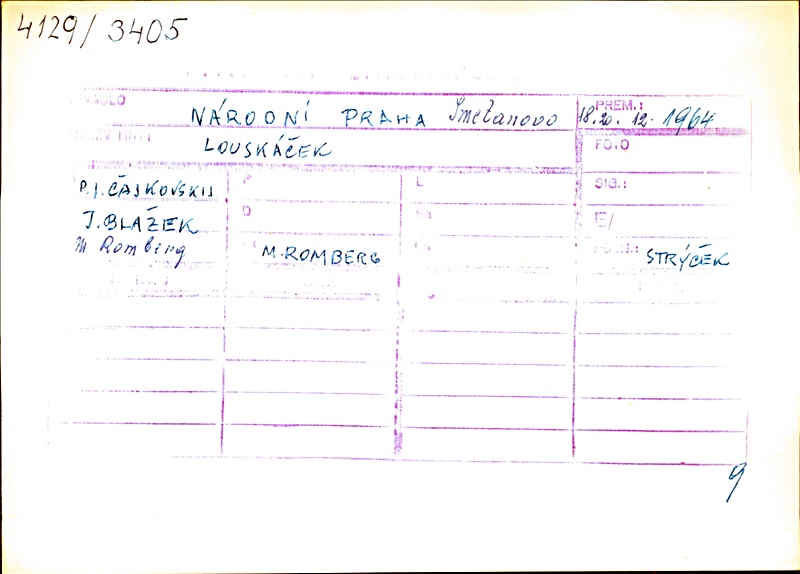 4129/3405
NÁRODNÍ PRAHA Smetanovo
PREM.: 18. 20. 12. 1964
LOUSKÁČEK
FOTO
P.J. ČAJKOVSKIJ
P
L
SIG.:
J. BLAŽEK
D
E/
M Romberg
M. ROMBERG
STRÝČEK
9